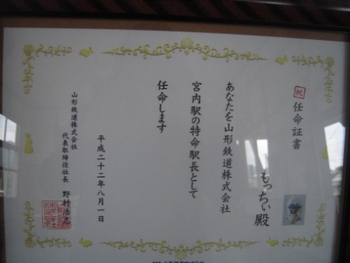 祝
任命証書
もっちぃ殿
あなたを山形鉄道株式会社
宮内駅の特命駅長として
任命します
平成二十二年八月一日
山形鉄道株式会社
代表取締役社長 野村浩志